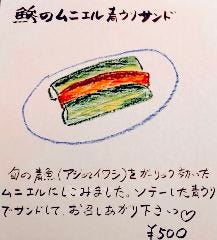 鯵のムニエル青ウリサンド
旬の青魚(アジorイワシ)をガーリック効いた
ムニエルにしこみました。ソテーした青ウリ
でサンドして、お召しあがり下さいっ♡
¥500